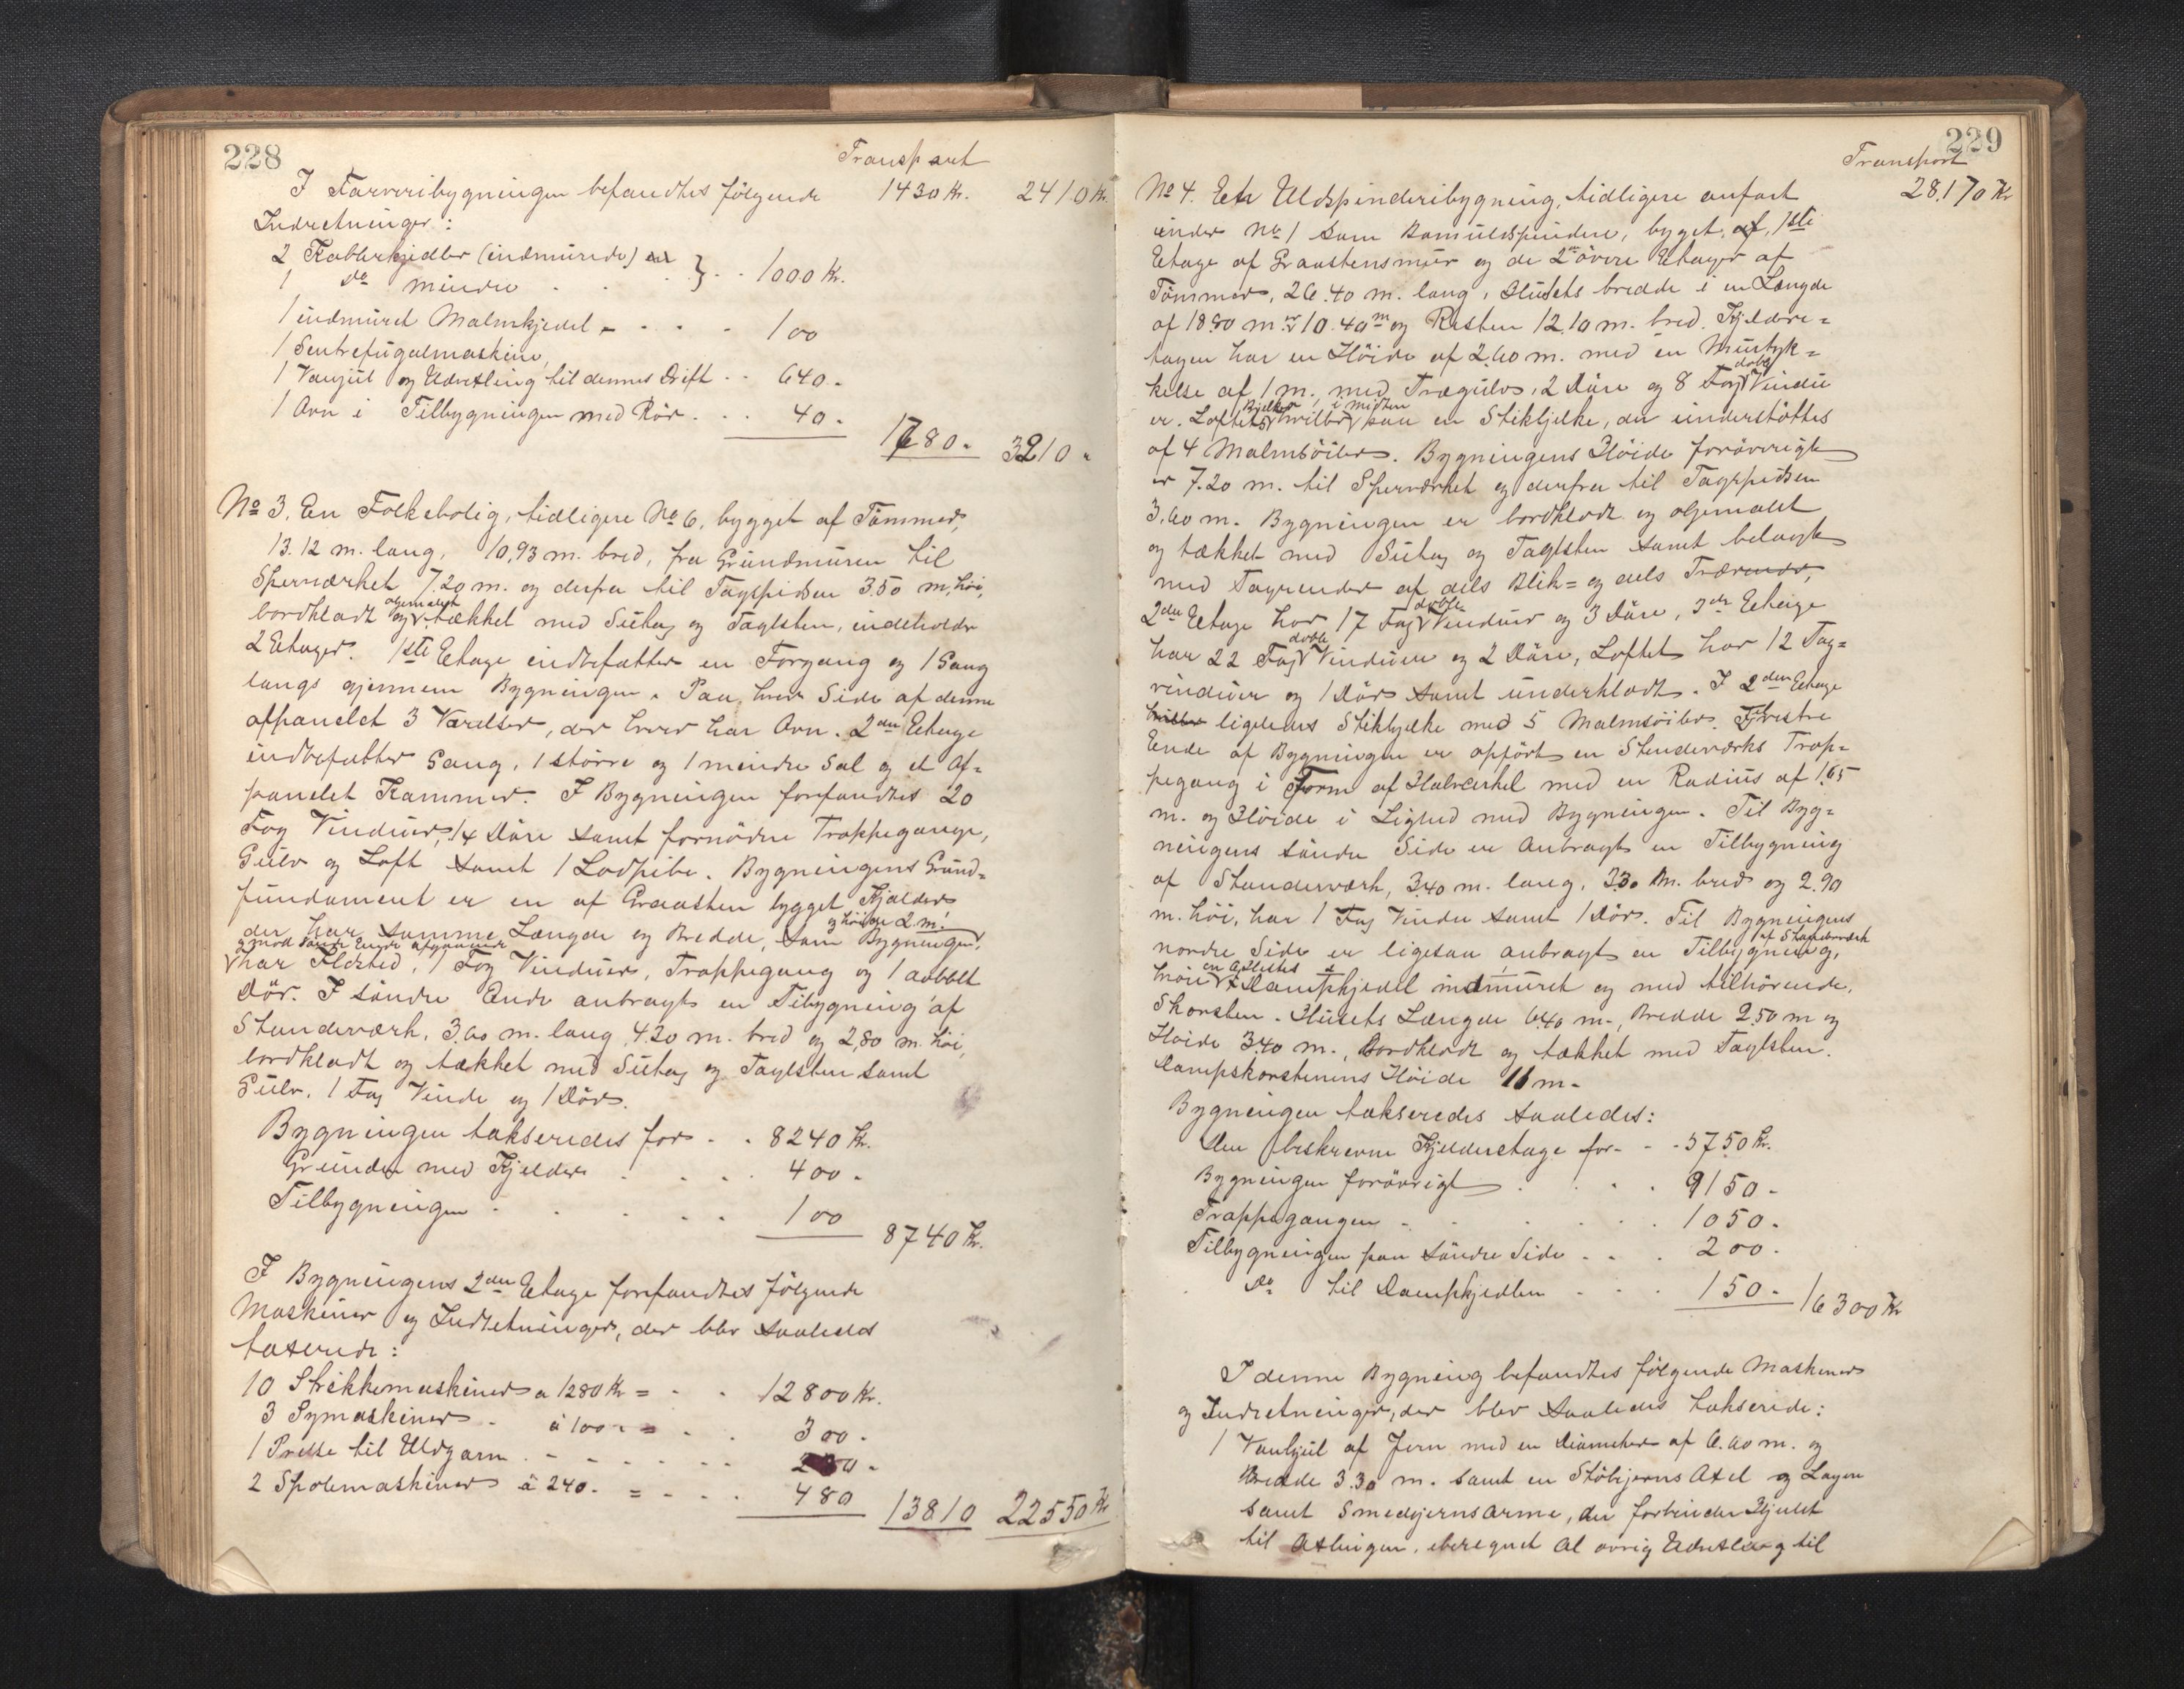 228
Transport
I Farveribygningen befandtes følgende 1430 Kr. 2410 Kr.
Indretninger:
2 Kobberkjedler (indmurede)
1 do mindre } 1000 Kr.
1 indmuret Malmkjedel 100
1 Sentrefugalmaskine,
1 Vanjul og Udvexling til dennes Drift 640 -
1 Ovn i Tilbygningen med Rör 40 -
1780 - 3210 -
No 3. En Folkebolig, tidligere No 6, bygget af Tömmer,
13.12 m. lang, 10,93 m. bred, fra Grundmuren til
Sperværket 7.20 m. og derfra til Tagspidsen 3.50 m. höi,
bordklædt oljemalet og tækket med Sutag og Taglsten, indeholder
2 Etager. 1ste Etage indbefatter en Forgang og 1 Gang
langs gjennem Bygningen. Paa hver Side af denne
afpanelet 3 Værelser, der hver har Ovn. 2den Etage
indbefatter Gang, 1 större og 1 mindre Sal og et af-
panelet Kammer. I Bygningen forefandtes 20
Fag Vinduer, 14 Döre samt fornödne Trappegange,
Gulv og Loft samt 1 Lodpibe. Bygningens Grund-
fundament er en af Graasten bygget Kjælder
der har samme Længde og Bredde, som Bygningen, og höide 2 m.
og mod söndre Ende afgaaende
har Ildsted, 1 Fag Vinduer, Trappegang og 1 dobbelt
Dör. I söndre Ende anbragt en Tilbygning af
Standerværk, 3.60 m. lang, 4.20 m. bred og 2,80 m. höi,
bordklædt og tækket med Sutag og Taglsten samt
Gulv, 1 Fag Vindu og 1 Dör.
Bygningen takseredes for 8240 Kr.
Grunden med Kjelder 400 -
Tilbygningen 100
8740 Kr.
I Bygningens 2den Etage forefandtes følgende
Maskiner og Indretninger, der blev saaledes
taxerede:
10 Strikkemaskiner a 1280 Kr = 12800 Kr.
3 Symaskiner - á 100 - = 300 -
1 Presse til Uldgarn 230 -
2 Spolemaskiner á 240. = 480
13810 22550 Kr
229
Transport
28.170 Kr
No 4. Et Uldspinderibygning, tidligere anført
under No 1 som Bomuldspinderi, bygget af, 1ste
Etage af Graastensmur og de 2de övre Etager af
Tömmer, 26.40 m. lang, Husets bredde i en Længde
af 18.80 m er 10.40 m og Resten 12.10 m. bred. Kjelder-
etagen har en Höide af 2.60 m. med en Murtyk-
kelse af 1 m., med Trægulv, 2 Döre og 8 Fag dobl Vindu
er. Loftets Bjelker hviler i Midten paa en Stikbjelke, der understöttes
af 4 Malmsöiler. Bygningens Höide forövrigt
er 7.20 m. til Sperværket og derfra til Tagspidsen
3.60 m. Bygningen er bordklædt og oljemalet
og tækket med Sutag og Taglsten samt belagt
med Tagrender af dels Blik- og dels Trærender,
2den Etage har 17 Fag doble Vinduer og 3 Döre, 3de Etage
har 22 Fag doble Vinduer og 2 Döre, Loftet har 12 Tag-
vinduer og 1 Dör samt underklædt. I 2den Etage
hviler ligeledes Stikbjelke med 5 Malmsöiler. Til Vestre
Ende af Bygningen er opfört en Stenderværks Trap-
pegang i Form af Halvcirkel med en Radius af 1.65
m. og Höide i Lighed med Bygningen. Til Byg-
ningens söndre Side er Anbragt en Tilbygning
af Standerværk, 3.40 m. lang, 3.30 m. bred og 2.90
m. höi, har 1 Fag Vindu samt 1 Dör. Til Bygningens
nordre Side er ligesaa anbragt en Tilbygning, af Standerværk
hvori Dampkjedel indmuret og med tilhörende
Skorsten. Husets Længde 6.40 m., Bredde 2.50 m og
Höide 3.40 m., Bordklædt og tækket med Taglsten.
Dampskorstenens Höide 11 m.
Bygningen takseredes saaledes:
Den beskrevne Kjelderetage for 5750 Kr.
Bygningen forövrigt 9150 -
Trappegangen 1050 -
Tilbygningen paa söndre Side 200 -
Do til Dampkjedlen 150 - 16300 Kr
I denne Bygning befandtes følgende Maskiner
og Indretninger, der blev saaledes takserede:
1 Vanhjul af Jern med en Diameter af 6.60 m. og
Bredde 3.30 m. samt en Stöbjerns Axel og Lagere
samt Smedjerns Arme, der forbinder Hjulet
til Axlingen, iberegnet al övrig Udvexling til